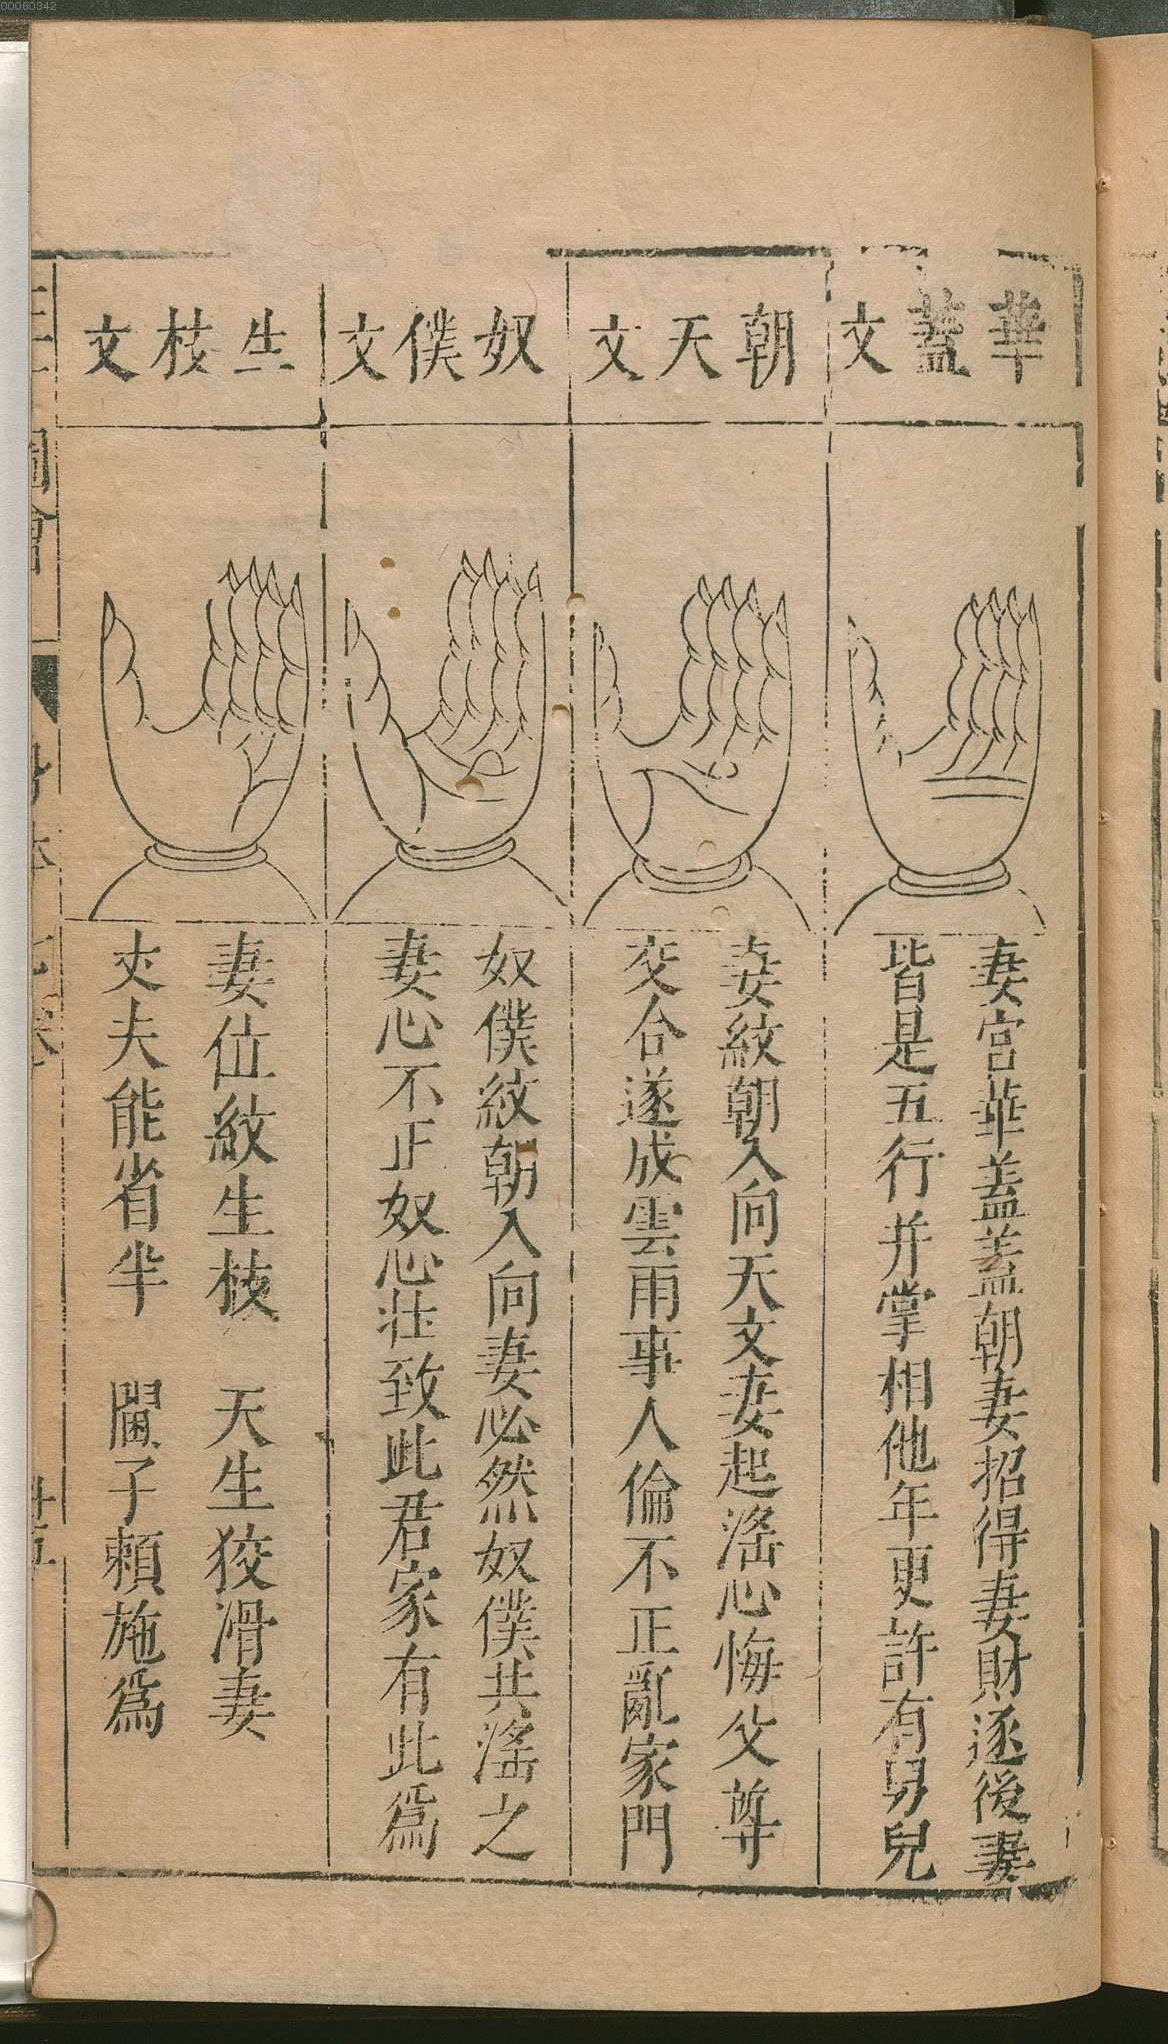 00060342
華蓋文
妻宮華蓋蓋朝妻招得妻財逐後妻
皆是五行并掌相他年更許有男兒
朝天文
妻紋朝入向天文妻起滛心悔父尊
交合遂成雲雨事人倫不正亂家門
奴僕文
奴僕紋朝入向妻必然奴僕共滛之
妻心不正奴心壮致此君家有此爲
生枝文
妻位紋生枝　天生狡滑妻
丈夫能省半　閫子頼施爲
圖會
七卷